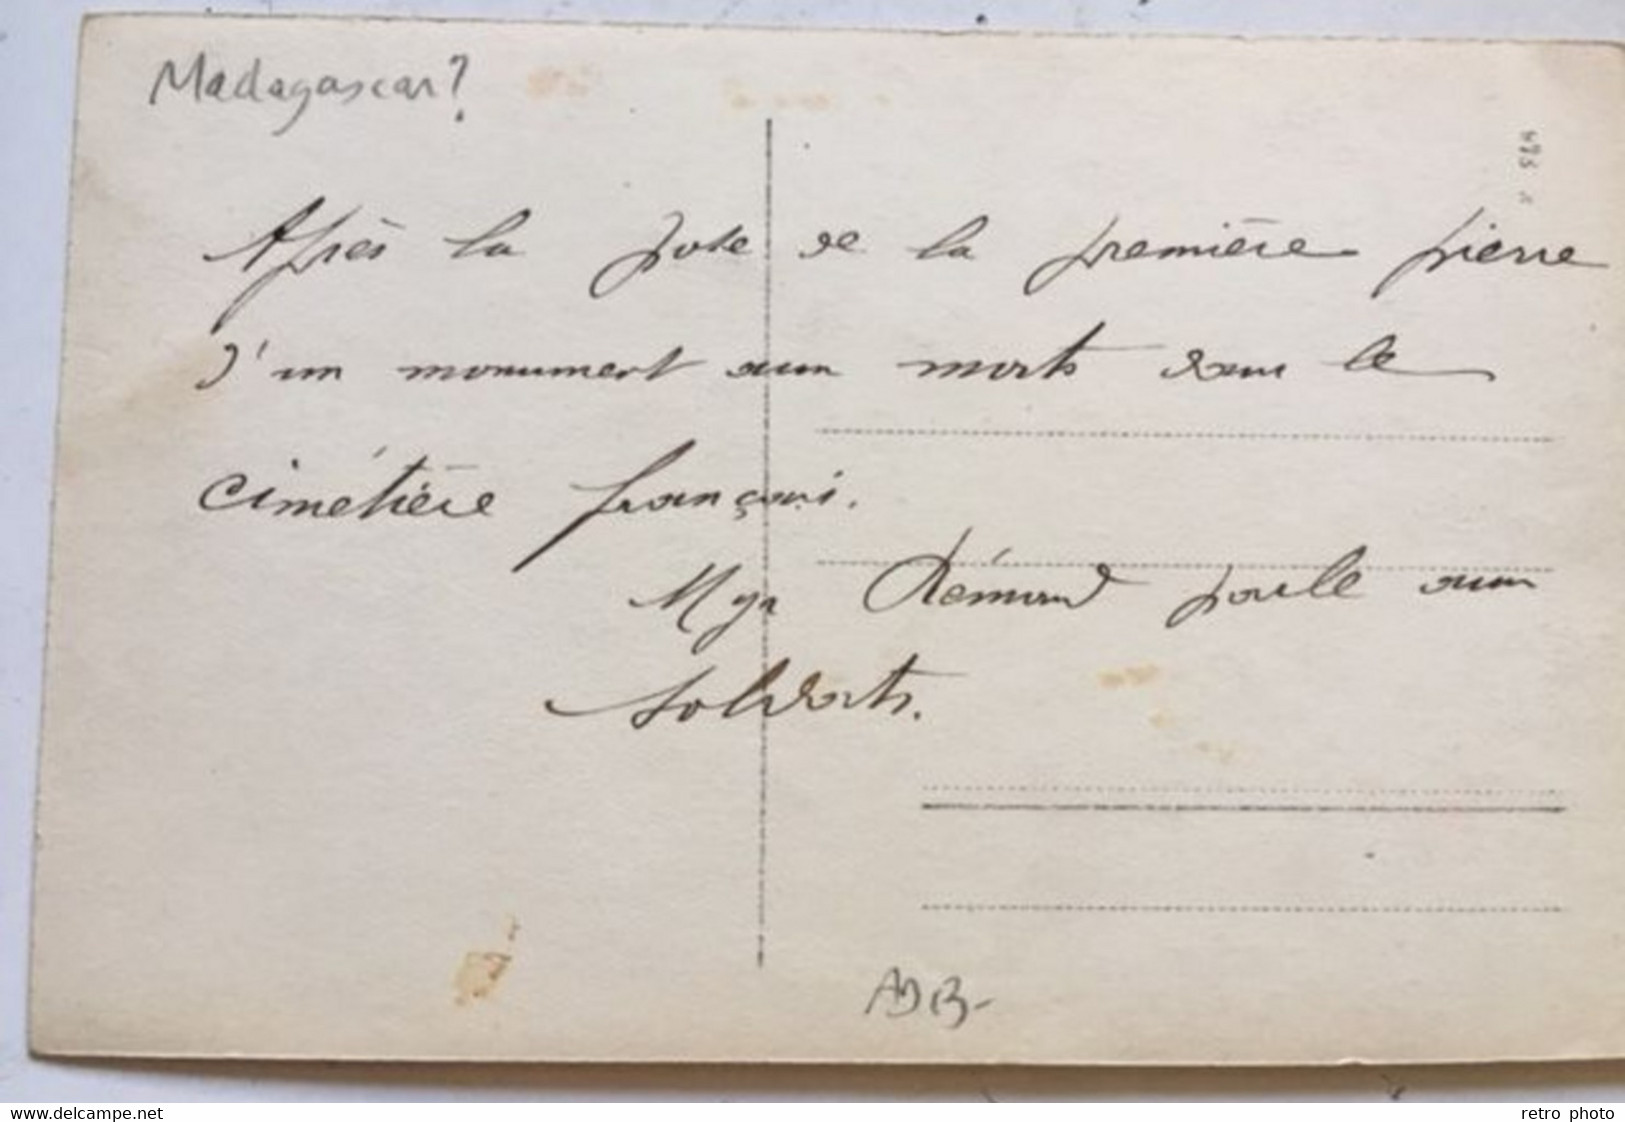 Madagascar?
Après la pose de la première pierre
d'un monument aux morts dans le
cimetière français.
Mgr Rémond parle aux
soldats.
www.delcampe.net
retro photo